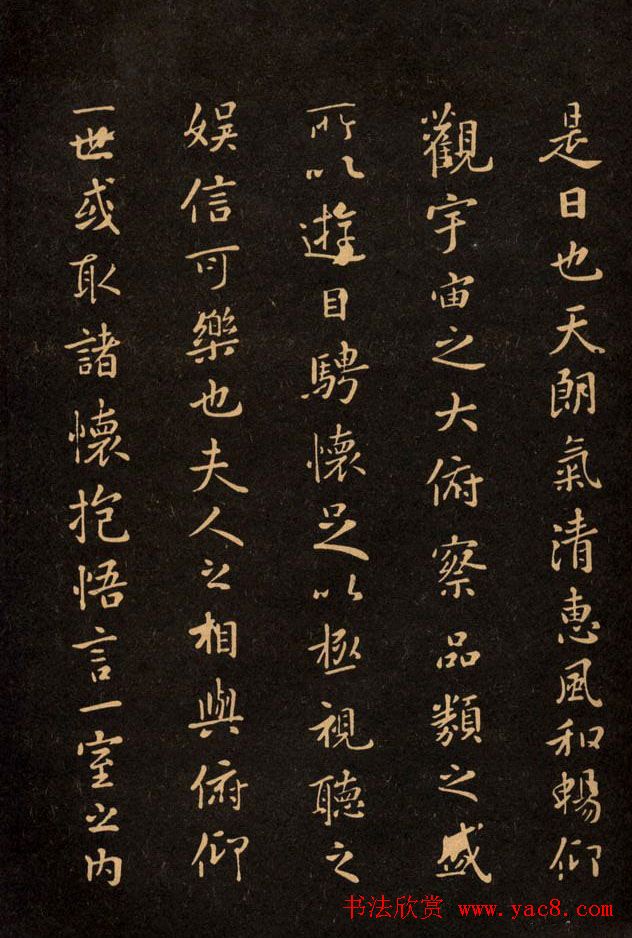 是日也天朗氣清惠風和暢仰
觀宇宙之大俯察品類之盛
所以遊目騁懷足以極視聽之
娛信可樂也夫人之相與俯仰
一世或取諸懷抱悟言一室之内
书法欣赏 www.yac8.com